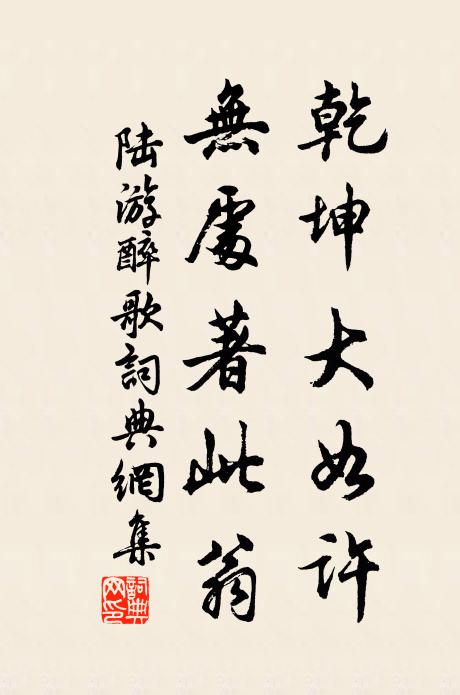 乾坤大如許
無處著此翁
陸游醉歌詞典網集
詞典網印